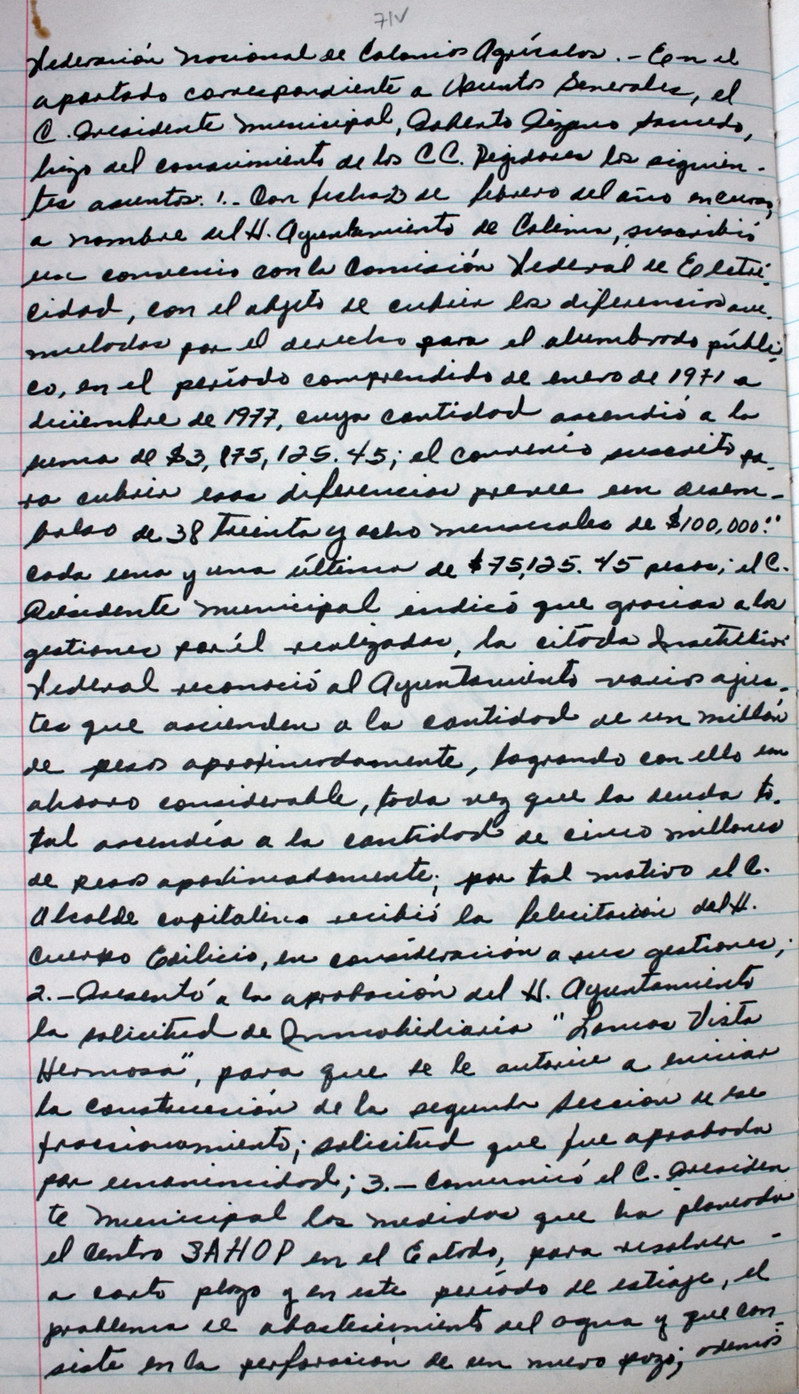 71V
Federación Nacional de Colonias Agrícolas.- En el
apartado correspondiente a Asuntos Generales, el
C. Presidente Municipal, Roberto
hizo del conocimiento de los CC. Regidores los siguien-
tes asuntos: 1.- Con fecha 2 de febrero del año en curso,
a nombre del H. Ayuntamiento de Colima, suscribió
un convenio con la Comisión Federal de Electri-
cidad, con el objeto de cubrir las diferencias acu-
muladas por el derecho para el alumbrado públi-
co, en el período comprendido de enero de 1971 a
diciembre de 1977, cuya cantidad ascendió a la
suma de $3,875,125.45; el convenio suscrito pa-
ra cubrir esas diferencias prevee un desem-
bolso de 38 treinta y ocho mensuales de $100,000.00
cada una y una última de $75,125.45 pesos; el C.
Presidente Municipal indicó que gracias a las
gestiones por él realizadas, la citada Institución
Federal reconoció al Ayuntamiento varios ajus-
tes que ascienden a la cantidad de un millón
de pesos aproximadamente, logrando con ello un
ahorro considerable, toda vez que la deuda to-
tal ascendía a la cantidad de cinco millones
de pesos aproximadamente; por tal motivo el C.
Alcalde capitalino recibió la felicitación del H.
Cuerpo Edilicio, en consideración a sus gestiones;
2.- Presentó a la aprobación del H. Ayuntamiento
la solicitud de Inmobiliaria "Lomas Vista
Hermosa", para que se le autorice a iniciar
la construcción de la segunda sección de ese
fraccionamiento; solicitud que fue aprobada
por unanimidad; 3.- Comunicó el C. Presiden
te Municipal las medidas que ha planeado
el Centro SAHOP en el Estado, para resolver -
a corto plazo y en este período de estiaje, el
problema de abastecimiento del agua y que con-
siste en la perforación de un nuevo pozo; además